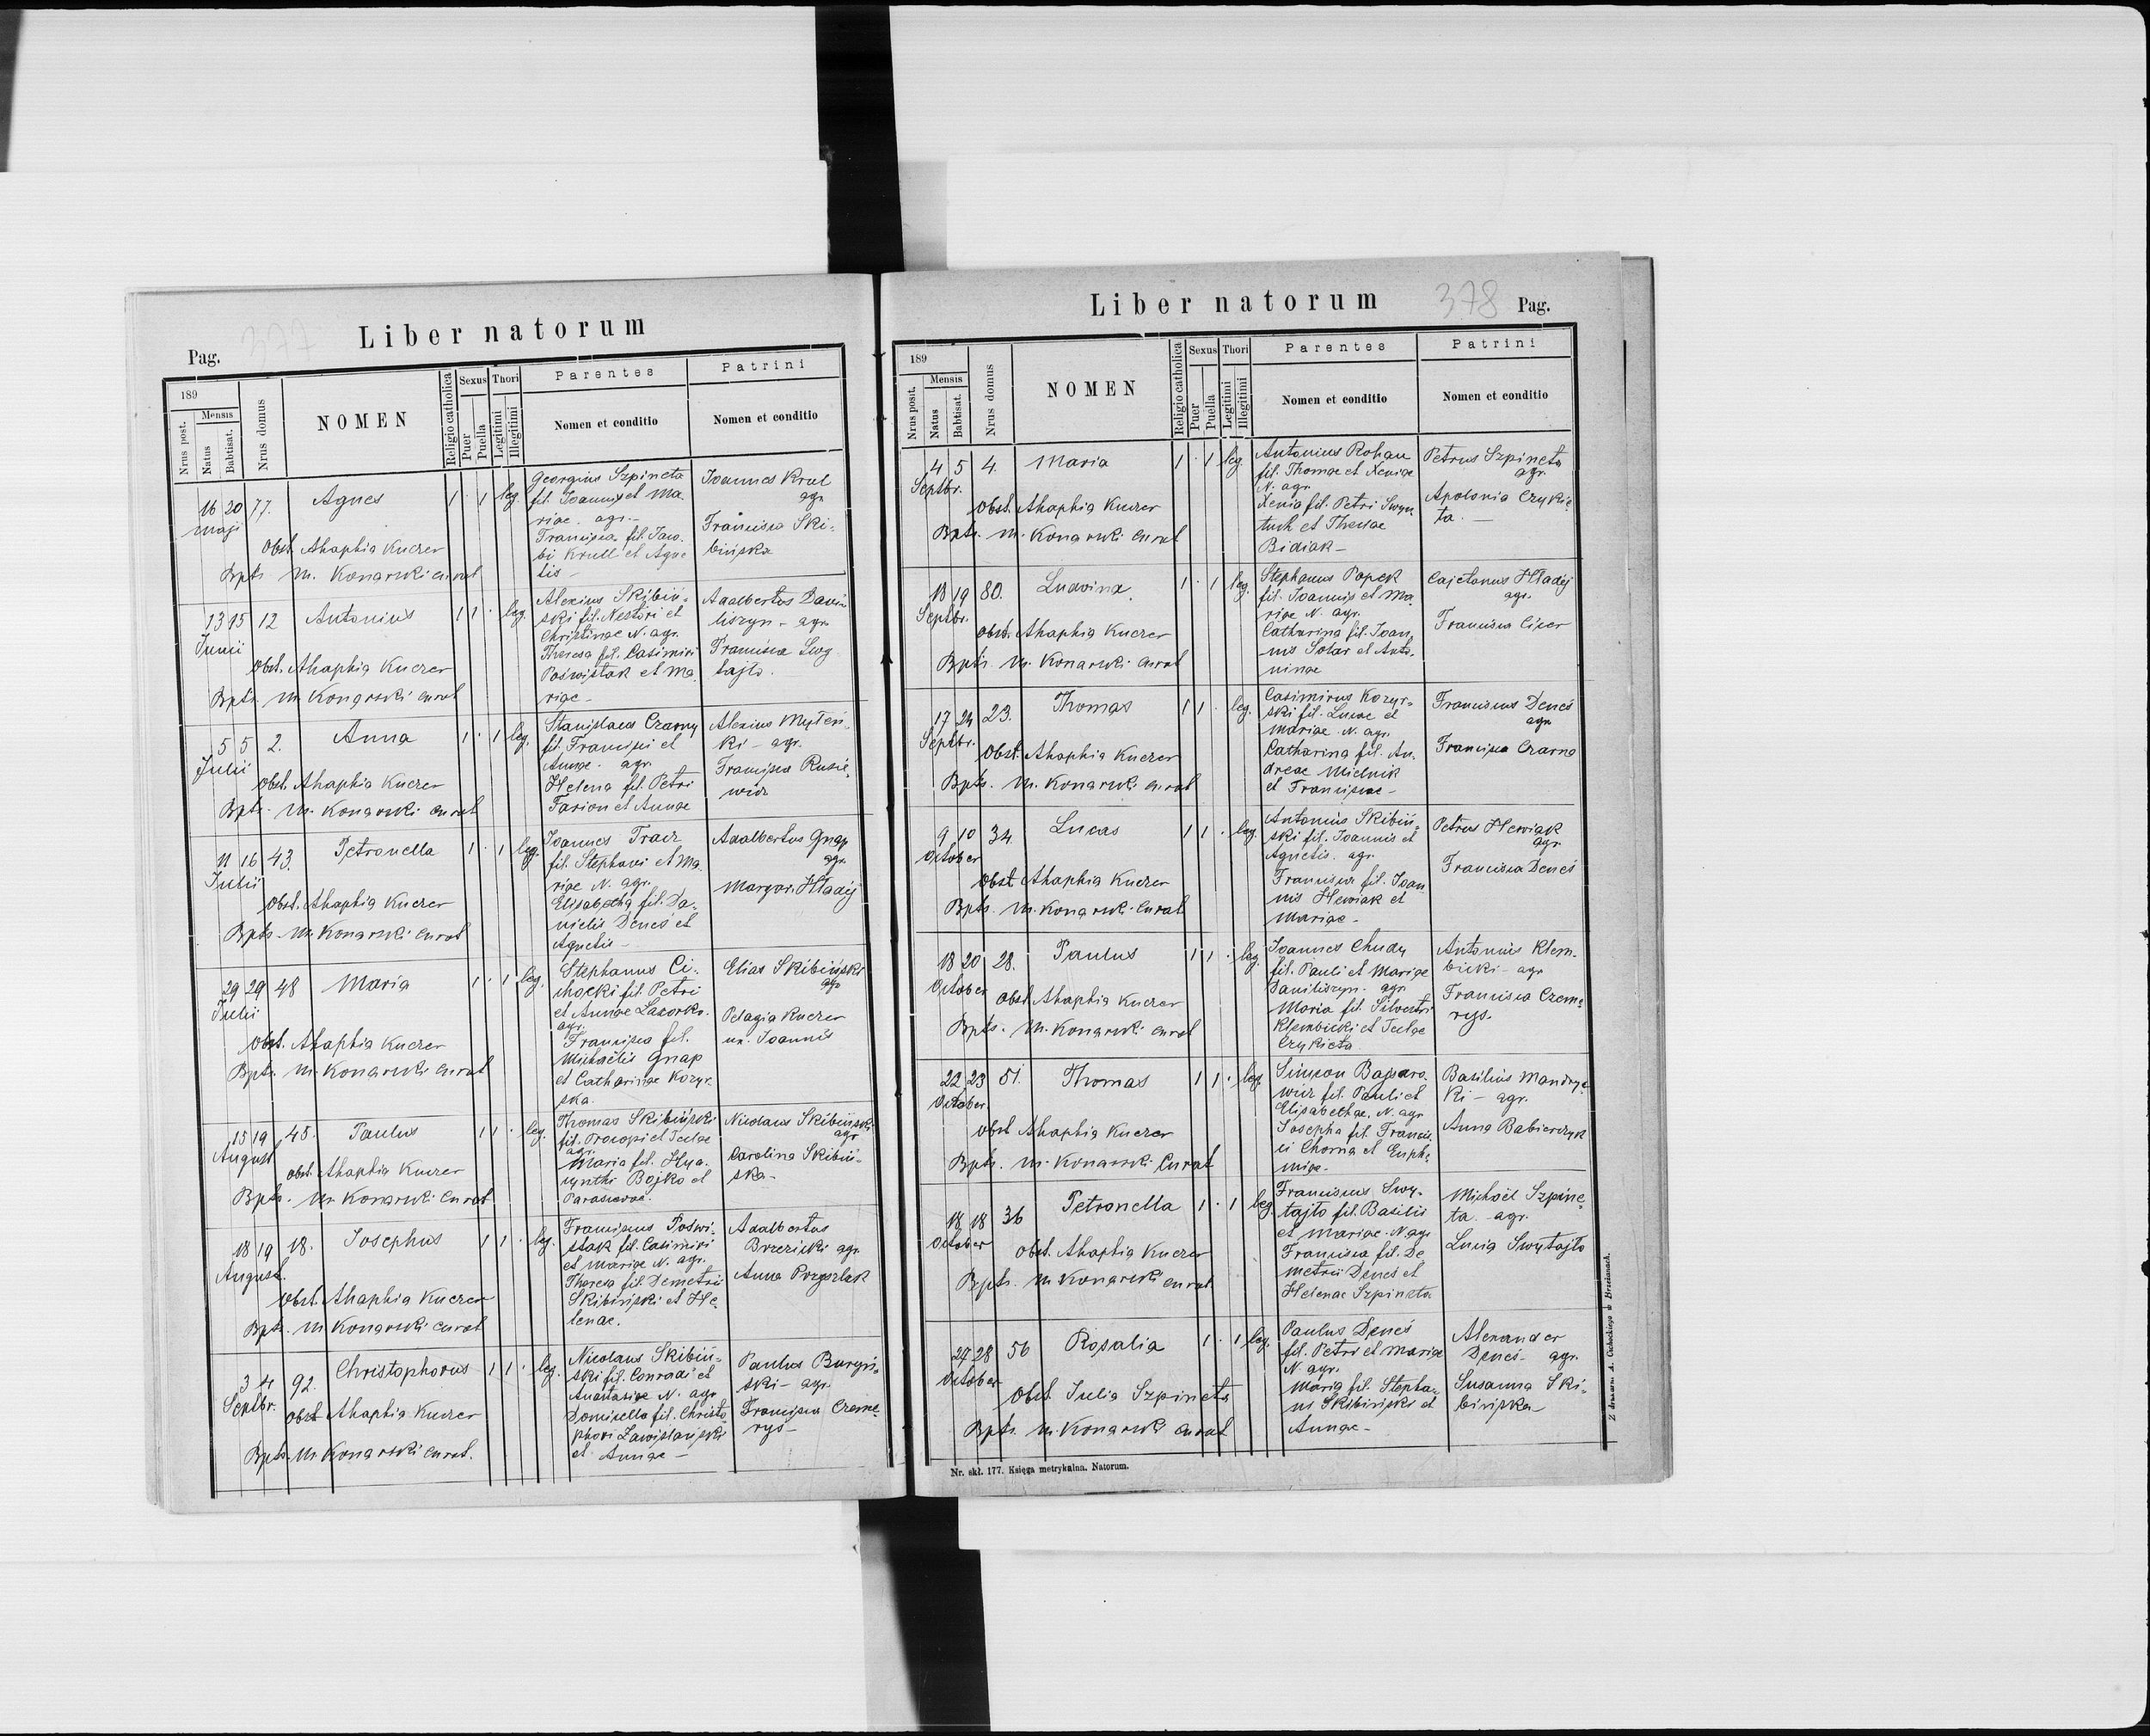 Pag. 377 Liber natorum
189
Nrus post.
Mensis
Natus
Babtisat.
Nrus domus
NOMEN
Religio catholica
Sexus
Puer
Puella
Thori
Legitimi
Illegitimi
Parentes
Nomen et conditio
Patrini
Nomen et conditio
16 20 77. Agnes 1 · 1 leg.
Maji
Obst. Ahaphia Kuczer
Bpts. M. Konarski curat
Georgius Szpineta
fil. Joannis et Ma-
riae. agr.-
Francisca fil. Jaco-
bi Krull et Agne
tis-
Joannes Krul
agr.
Francisca Ski-
bińska
13 15 12 Antonius 1 1 · leg.
Junii
Obst. Ahaphia Kuczer
Bpts. M. Konarski curat
Alexius Skibiń-
ski fil. Nestori et
Christinae N. agr.
Theresa fil. Casimiri
Poświstak et Ma-
riae-
Adalbertus Dani-
liszyn - agr.
Francisca Swy
tajło.
5 5 2. Anna 1 · 1 leg.
Julii
Obst. Ahaphia Kuczer
Bpts. M. Konarski curat
Stanislaus Czarny
fil. Francisci et
Annae. agr.
Helena fil. Petri
Farion et Annae
Alexius Myteń-
ki - agr.
Francisca Rusie-
wicz
11 16 43. Petronella 1 · 1 leg.
Julii
Obst. Ahaphia Kuczer
Bpts. M. Konarski curat
Joannes Tracz
fil. Stephani et Ma-
riae N. agr.
Elisabetha fil. Da-
nielis Deneś et
Agnetis-
Adalbertus Gnap
agr.
Margar. Hładij
29 29 48 Maria 1 · 1 leg.
Julii
Obst. Ahaphia Kuczer
Bpts. M. Konarski curat
Stephanus Ci-
chocki fil. Petri
et Annae Lasorko.
agr.
Francisca fil.
Michaëlis Gnap
et Catharinae Kozyr-
ska.
Elias Skibiński
agr.
Pelagia Kuczer
ux. Joannis
15 19 45. Paulus 1 1 · leg.
August
obst. Ahaphia Kuczer
Bpts. M. Konarski curat
Thomas Skibiński
fil. Procopi et Teclae
agr.
Maria fil. Hya-
cynthi Bojko et
Parascevae.
Nicolaus Skibiński
agr.
Carolina Skibiń-
ska-
18 19 18. Josephus 1 1 · leg.
August.
Obst. Ahaphia Kuczer
Bpts. M. Konarski curat
Franciscus Poświ-
stak fil. Casimiri
et Mariae N. agr.
Theresa fil. Demetrii
Skibiński et He-
lenae.
Adalbertus
Brzezicki agr.
Anna Przyszlak
3 4 92. Christophorus 1 1 · leg.
Septbr.
obst Ahaphia Kuczer
Bpts. M. Konarski curat.
Nicolaus Skibiń-
ski fil. Conradi et
Anastasiae N. agr
Domicella fil. Christo-
phori Zawislański
et Annae-
Paulus Buryń-
ski - agr.
Francisca Czeme-
rys-
Liber natorum 378 Pag.
189
Nrus posit.
Mensis
Natus
Babtisat.
Nrus domus
NOMEN
Religio catholica
Sexus
Puer
Puella
Thori
Legitimi
Illegitimi
Parentes
Nomen et conditio
Patrini
Nomen et conditio
4 5 4. Maria 1 · 1 leg.
Septbr.
Obst. Ahaphia Kuczer
Bpts. M. Konarski curat
Antonius Rohan
fil. Thomae et Xeniae
N. agr.
Xenia fil. Petri Swyn-
tuch et Theclae
Bidiak-
Petrus Szpineta
agr.
Apolonia Czykie-
ta.-
18 19 80. Ludwina. 1 · 1 leg.
Septbr.
Obst. Ahaphia Kuczer
Bpts. M. Konarski curat
Stephanus Popek
fil. Joannis et Ma-
riae N. agr.
Catharina fil. Joan-
nis Solar et Anto-
ninae
Cajetanus Hładij
agr.
Francisca Cicer
17 24 23. Thomas 1 1 · leg.
Septbr.
Obst. Ahaphia Kuczer
Bpts. M. Konarski curat
Casimirus Kozyr-
ski fil. Lucae et
Mariae. N. agr.
Catharina fil. An-
dreae Mielnik
et Franciscae-
Franciscus Deneś
agr.
Francisca Czarna
9 10 34 Lucas 1 1 · leg.
October
Obst Ahaphia Kuczer
Bpts. M. Konarski curat
Antonius Skibiń-
ski fil. Joannis et
Agnetis. agr.
Francisca fil. Joan
nis Hewiak et
Mariae-
Petrus Hewiak
agr.
Francisca Deneś
18 20 28. Paulus 1 1 · leg.
October
Obst. Ahaphia Kuczer
Bpts. M. Konarski curat
Joannes Chudy
fil. Pauli et Mariae
Daniliszyn. agr.
Maria fil. Silvestri
Klembicki et Teclae
Czykieta
Antonius Klem-
bicki - agr
Francisca Czeme-
rys.
22 23 51. Thomas 1 1 · leg.
October.
obst Ahaphia Kuczer
Bpts. M. Konarski Curat
Simeon Bajsaro-
wicz fil. Pauli et
Elisabethae. N. agr
Josepha fil. Francis-
ci Chorna et Euphe-
miae-
Basilius Mandryc-
ki - agr.
Anna Babierczyk
18 18 36 Petronella 1 · 1 leg.
October
obst. Ahaphia Kuczer
Bpts. M. Konarski curat
Franciscus Swy-
tajło fil. Basilii
et Mariae. N. agr
Francisca fil. De
metrii Deneś et
Helenae Szpineta
Michaël Szpine-
ta. - agr.
Lucia Swytajło
27 28 56 Rosalia 1 · 1 leg.
October
Obst. Julia Szpineta
Bpts. M. Konarski curat
Paulus Deneś
fil. Petri et Mariae
N. agr.
Maria fil. Stepha-
ni Skibiński et
Annae-
Alexander
Deneś - agr.
Susanna Ski-
bińska
Nr. skł. 177. Księga metrykalna. Natorum.
Z drukarni A. Cichockiego w Brzeżanach.